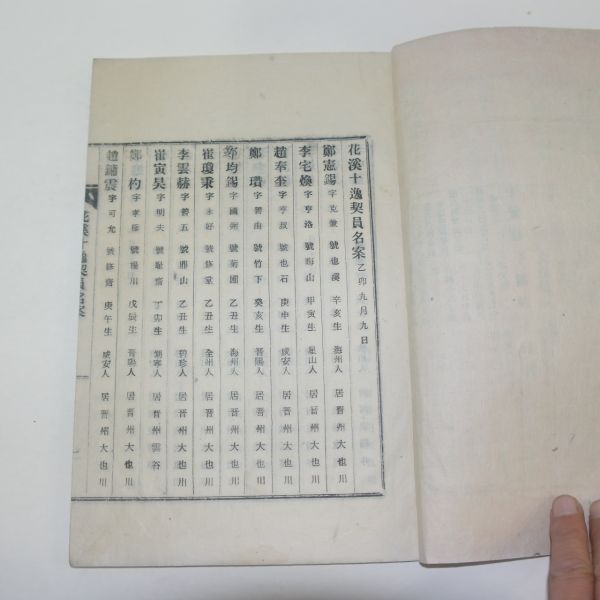 花溪十逸契員名案 乙卯九月九日
鄭憲錫 字 克 號 也溪 辛亥生 海州人 居晋州大也川
李宅煥 字 亨洛 號 海山 甲寅生 星山人 居晋州大也川
趙奉奎 字 亨叔 號 也石 庚申生 咸安人 居晋州大也川
鄭 瓚 字 善由 號 竹下 癸亥生 晋陽人 居晋州大也川
鄭均錫 字 國 號 菊圃 乙丑生 海州人 居晋州大也川
崔瓊秉 字 永好 號 修堂 乙丑生 全州人 居晋州大也川
李雲赫 字 善五 號 山 乙丑生 碧珍人 居晋州大也川
崔寅昊 字 明夫 號 齋 丁卯生 人 居晋州雲谷
鄭 杓 字 孝 號 川 戊辰生 晋陽人 居晋州大也川
趙鏞震 字 可允 號 修齋 庚午生 咸安人 居晋州大也川
花溪十逸契員名案